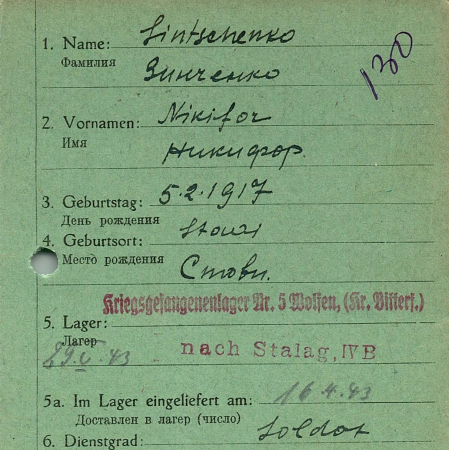 1. Name: Sintschenko
Фамилия Зинченко
130
2. Vornamen: Nikifor
Имя Никифор.
3. Geburtstag: 5.2.1917
День рождения
4. Geburtsort:
Место рождения
Kriegsgefangenenlager Nr. 5 Wolfen, (Kr. Bitterf.)
5. Lager:
Лагерь
nach Stalag, IV B
5a. Im Lager eingeliefert am: 16.4.43
Доставлен в лагер (число)
6. Dienstgrad: Soldat